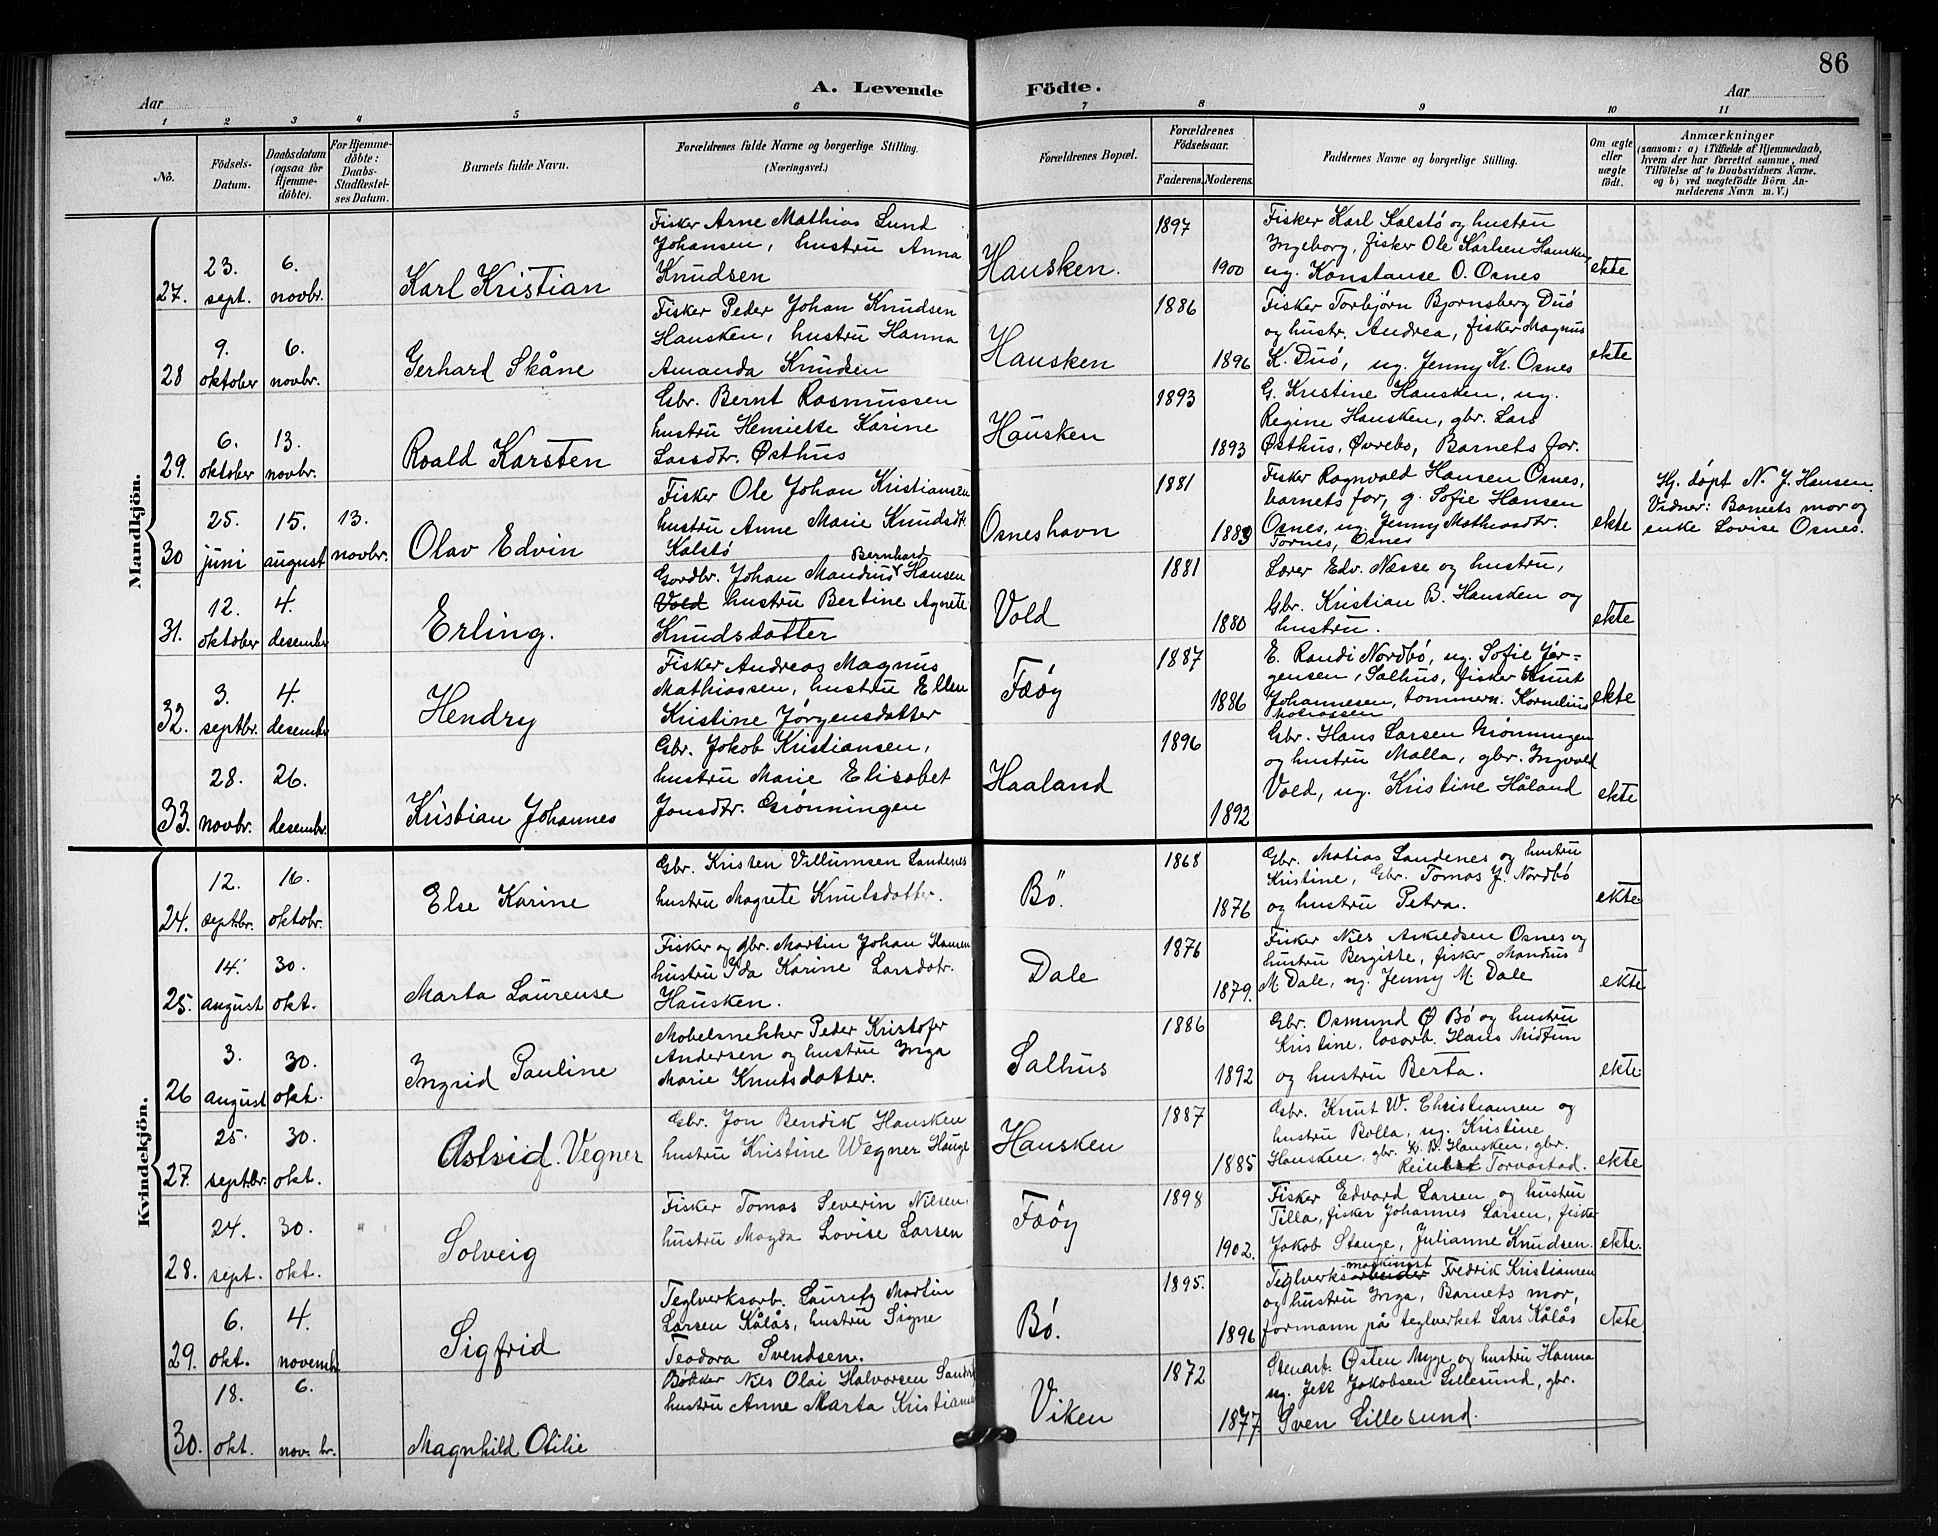 86
A. Levende Födte.
Aar
Aar
1 2 3 4 5 6 7 8 9 10 11
No.
Födsels-Datum.
Daabsdatum (ogsaa for Hjemme-döbte).
For Hjemme-döbte: Daabs-Stadfæstel-ses Datum.
Barnets fulde Navn.
Forældrenes fulde Navne og borgerlige Stilling.
(Næringsvei.)
Forældrenes Bopæl.
Forældrenes Födselsaar.
Faderens.
Moderens.
Faddernes Navne og borgerlige Stilling.
Om ægte eller uægte födt.
Anmærkninger
(saasom: a) i Tilfælde af Hjemmedaab,
hvem der har forrettet samme, med
Tilföielse af to Daabsvidners Navne.
og b) ved uægtefödte Börn An-
melderens Navn m. V.)
Mandkjön.
27. 23. sept. 6. novbr. Karl Kristian
Fisker Arne Mathias Lund
Johansen, hustru Anna
Knudsen
Hausken. 1897 1900
Fisker Karl Kalstö og hustru
Ingeborg, fisker Ole Karlsen Hausken,
ug. Konstanse O. Osnes
ekte
28 9. oktober 6. novbr. Gerhard Skåne
Fisker Peder Johan Knudsen
Hausken, hustru Hanna
Amanda Knudsen
Hausken 1886 1896
Fisker Torbjørn Bjornsberg Duö
og hustr. Andrea, fisker Magnus
K. Duö, ug. Jenny Kr. Osnes
ekte
29. 6. oktober 13. novbr. Roald Karsten
Gbr. Bernt Rasmussen
hustru Henriette Karine
Larsdtr. Østhus
Hausken 1893 1893
G. Kristine Hausken, ug.
Regine Hausken, gbr. Lars
Østhus, Øvrebø, Barnets far.
30 25. juni 15. august 13. novbr. Olav Edvin
Fisker Ole Johan Kristiansen
hustru Anne Marie Knudsdtr.
Kalstö
Osneshavn 1881 1883
Fisker Ragnvald Hansen Osnes,
barnets far, g. Sofie Hansen
Osnes, ug. Jenny Mathiasdtr.
Tornes, Osnes
ekte
Hj. døpt N. J. Hansen.
Vidner: Barnets mor og
enke Lovise Osnes.
31. 12. oktober 4. desember Erling.
Bernhard
Gordbr. Johan Mandius Hansen
Vold hustru Bertine Agnete
Knudsdatter
Vold 1881 1880
Lærer Edv. Næsse og hustru,
Gbr. Kristian B. Hausken og
hustru.
ekte
32. 3. septbr. 4. desembr Hendry
Fisker Andreas Magnus
Mathiassen, hustru Ellen
Kristine Jørgensdatter
Føöy 1887 1886
E. Randi Nordbö, ug. Sofie Jør=
gensen, Salhus, fisker Knut
Johannesen, tømmerm. Kornelius
ekte
33. 28. novbr. 26. desembr. Kristian Johannes
Gbr. Jokob Kristiansen,
hustru Marie Elisabet
Jonsdtr. Grönningen
Haaland 1896 1892
Gbr. Hans Larsen Grönningen
og hustru Malla, gbr. Ingvald
Vold, ug. Kristine Håland
ekte
Kvindekjön.
24. 12. septbr. 16. oktobr. Else Karine
Gbr. Kristen Villumsen Landenes
hustru Magrete Knutsdatter.
Bö. 1868 1876
Gbr. Matias Landenes og hustru
Kristine, Gbr. Tomas J. Nordbö
og hustru Petra.
ekte
25. 14. august 30. okt. Marta Laurense
Fisker og gbr. Martin Johan Hansen
hustru Ida Karine Larsdatr.
Hausken.
Dale 1876 1879.
Fisker Nils Askildsen Osnes og
hustru Bergitte, fisker Mandius
M. Dale, ug. Jenny M. Dale
ekte
26 3. august 30. okt. Ingrid Pauline
Møbelsnekker Peder Kristofer
Andersen og hustru Inga
Marie Knutsdatter.
Salhus 1886 1892
Gbr. Osmund Ø Bö og hustru
Kristine, losarb. Hans Midtun
og hustru Berta.
ekte.
27. 25. septbr. 30. okt. Astrid Vegner
Gbr. Jon Bendik Hausken
hustru Kristine Wegner Hauge
Hausken 1887 1885
Gbr. Knut W. Christiansen og
hustru Bolla, ug. Kristine
Hausken, gbr. K. B. Hausken, gbr.
Torvastad.
ekte
28. 24. sept. 30. okt. Solveig
Fisker Tomas Severin Nilsen,
hustru Magda Lovise Larsen
Føöy 1898 1902.
Fisker Edvard Larsen og hustru
Tilla, fisker Johannes Larsen, fisker
Jakob Stange, Julianne Knudsen.
ekte.
29. 6. okt. 4. novembr. Sigfrid
Teglverksarb. Lauritz Martin
Larsen Kålås, hustru Signe
Teodora Svendsen.
Bö. 1895. 1896
maskinist
Teglverksarbeider Fredrik Kristiansen
og hustru Inga, Barnets mor,
formann på teglverket Lars Kålås
ekte
30. 18. okt. 6. nov. br. Magnhild Otilie
Bøkker Nils Olai Halvorsen
hustru Anne Marta
Viken 1872 1877
Stenarb. Østen Myge og hustru Hanna
ug. Jakobsen Lillesund, gbr.
Sven Lillesund.